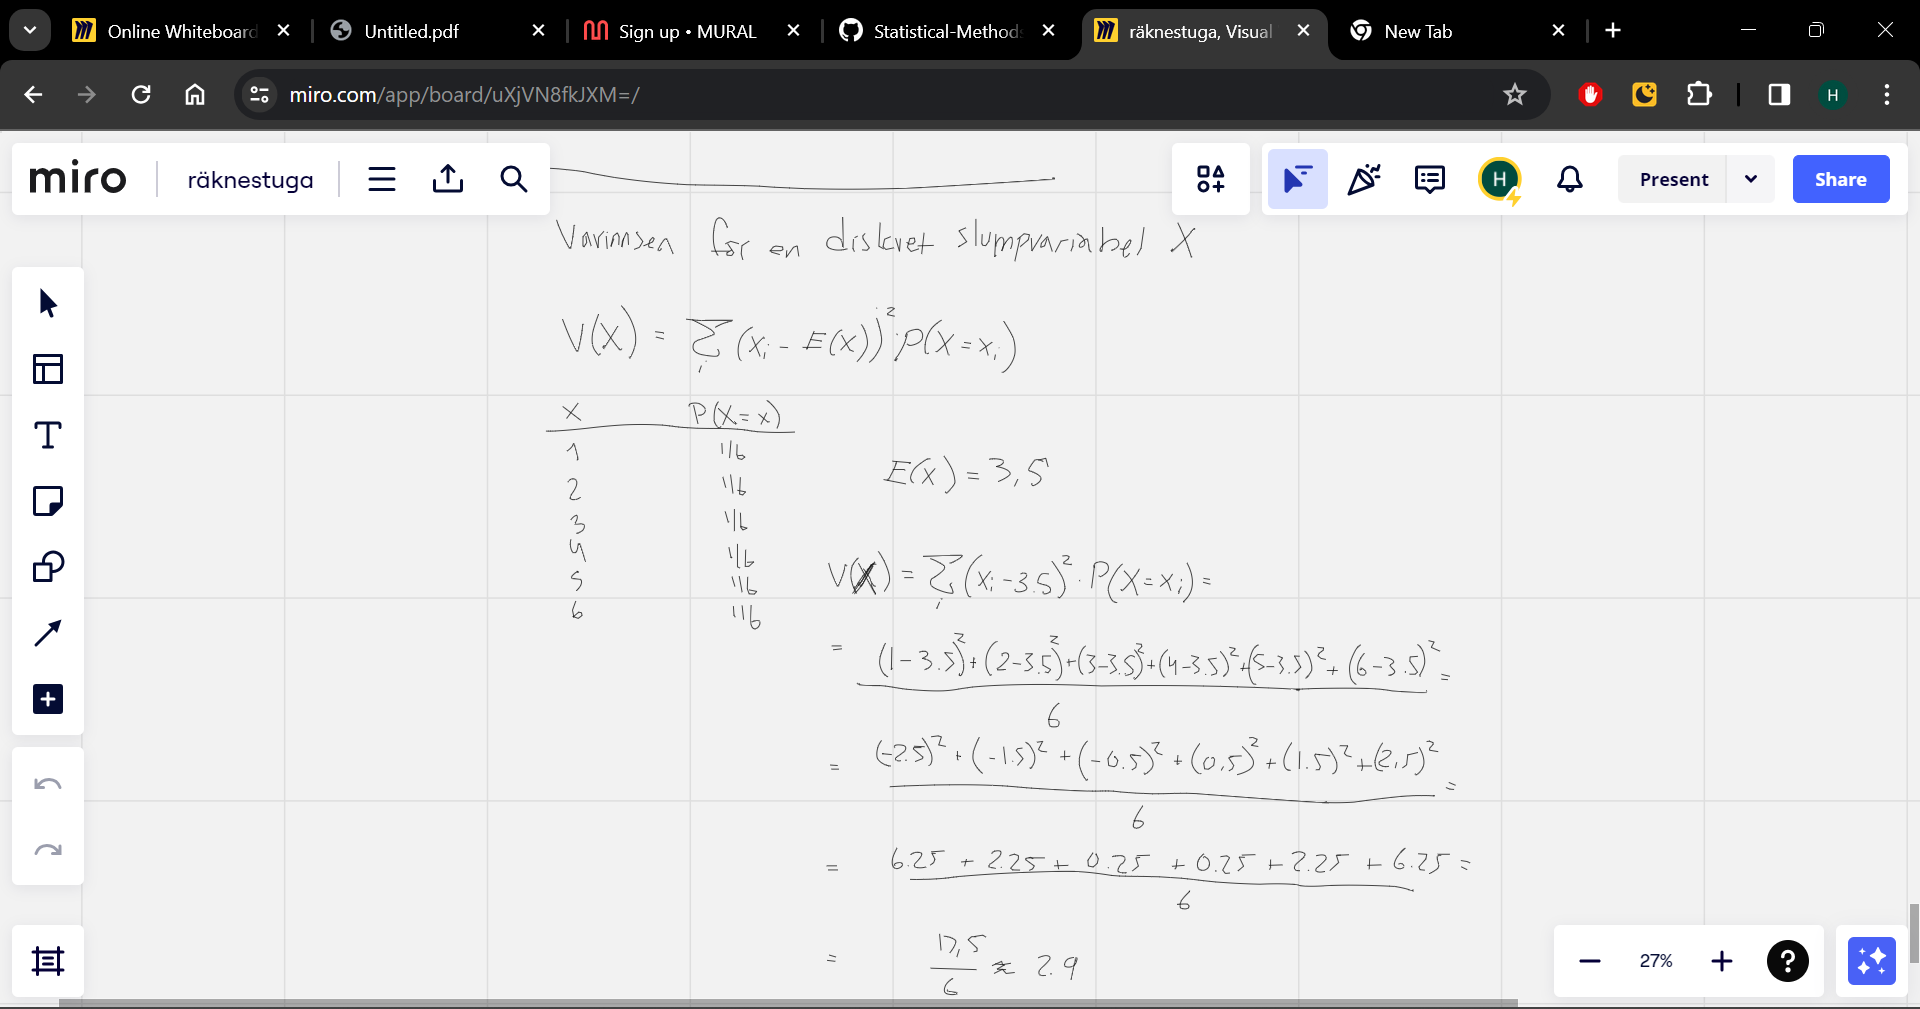 Online Whiteboard
Untitled.pdf
Sign up • MURAL
Statistical-Methods
räknestuga, Visual
New Tab
miro.com/app/board/uXjVN8fkJXM=/
H
miro
räknestuga
H
Present
Share
Variansen för en diskret slumpvariabel X
V(X) = ∑i (xi - E(X))² · P(X=xi)
X P(X=x)
1 1/6
2 1/6
3 1/6
4 1/6
5 1/6
6 1/6
E(X) = 3,5
V(X) = ∑i (xi - 3.5)² · P(X=xi) =
= (1-3.5)² + (2-3.5)² + (3-3.5)² + (4-3.5)² + (5-3.5)² + (6-3.5)² =
6
= (-2.5)² + (-1.5)² + (-0.5)² + (0.5)² + (1.5)² + (2,5)² =
6
= 6.25 + 2.25 + 0.25 + 0.25 + 2.25 + 6.25 =
6
= 17,5
6
≈ 2.9
27%
?